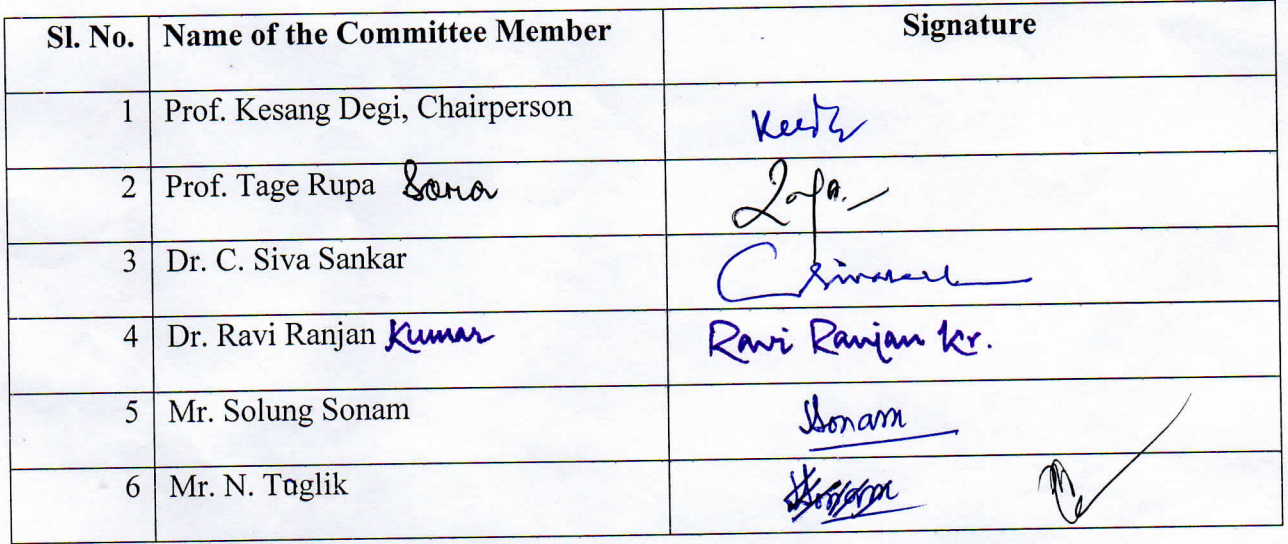 Sl. No. Name of the Committee Member Signature
1 Prof. Kesang Degi, Chairperson
2 Prof. Tage Rupa Sora
3 Dr. C. Siva Sankar
4 Dr. Ravi Ranjan Kumar Ravi Ranjan Kr.
5 Mr. Solung Sonam Sonam
6 Mr. N. Taglik